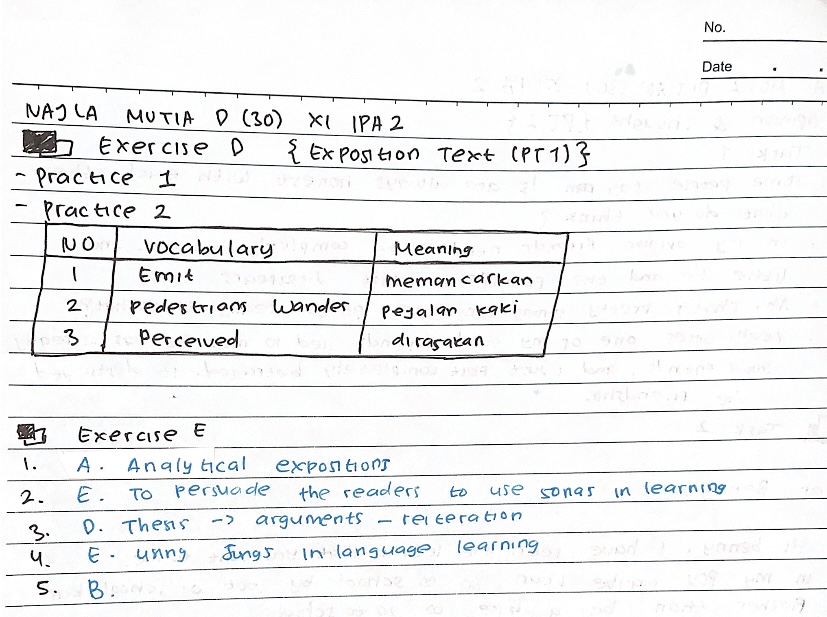 No.
Date
NAJLA MUTIA D (30) XI IPA 2
Exercise D {Exposition Text (PT1)}
- Practice 1
- Practice 2
NO Vocabulary Meaning
1 Emit memancarkan
2 Pedestrians Wander Pejalan kaki
3 Perceived dirasakan
Exercise E
1. A. Analytical expositions
2. E. To persuade the readers to use songs in learning
3. D. Thesis -> arguments - reiteration
4. E. in language learning
5. B.